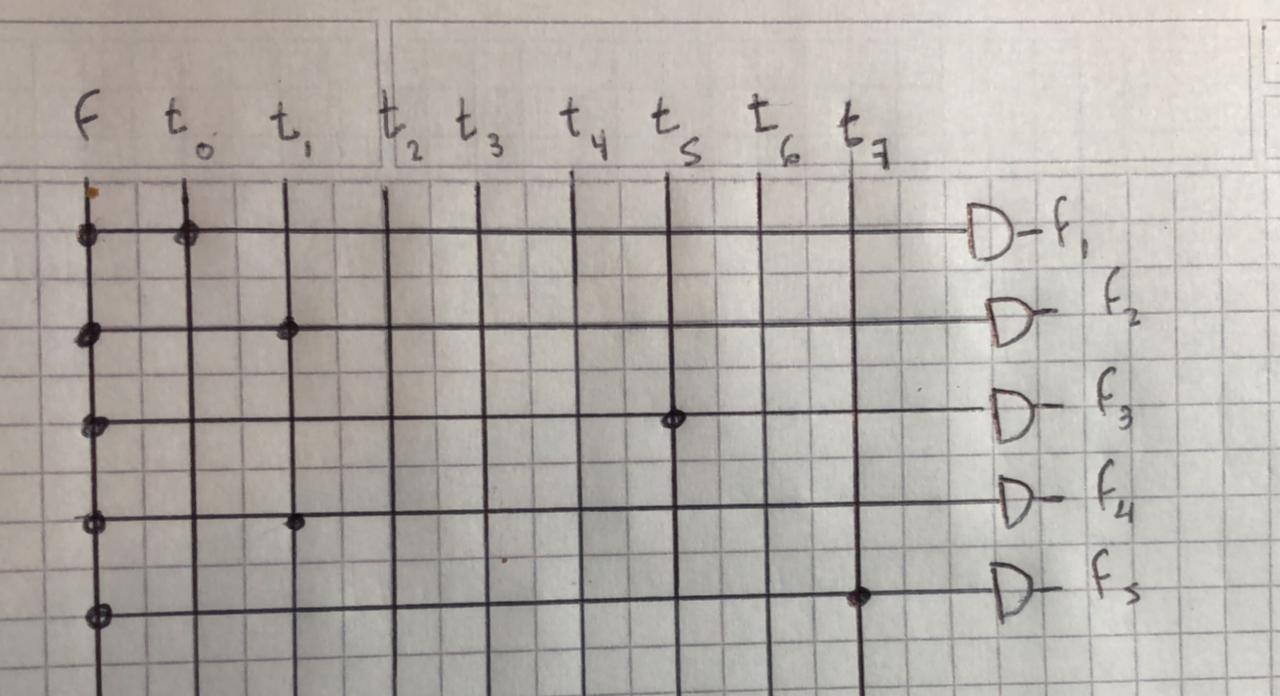 f t₀ t₁ t₂ t₃ t₄ t₅ t₆ t₇
f₁
f₂
f₃
f₄
f₅